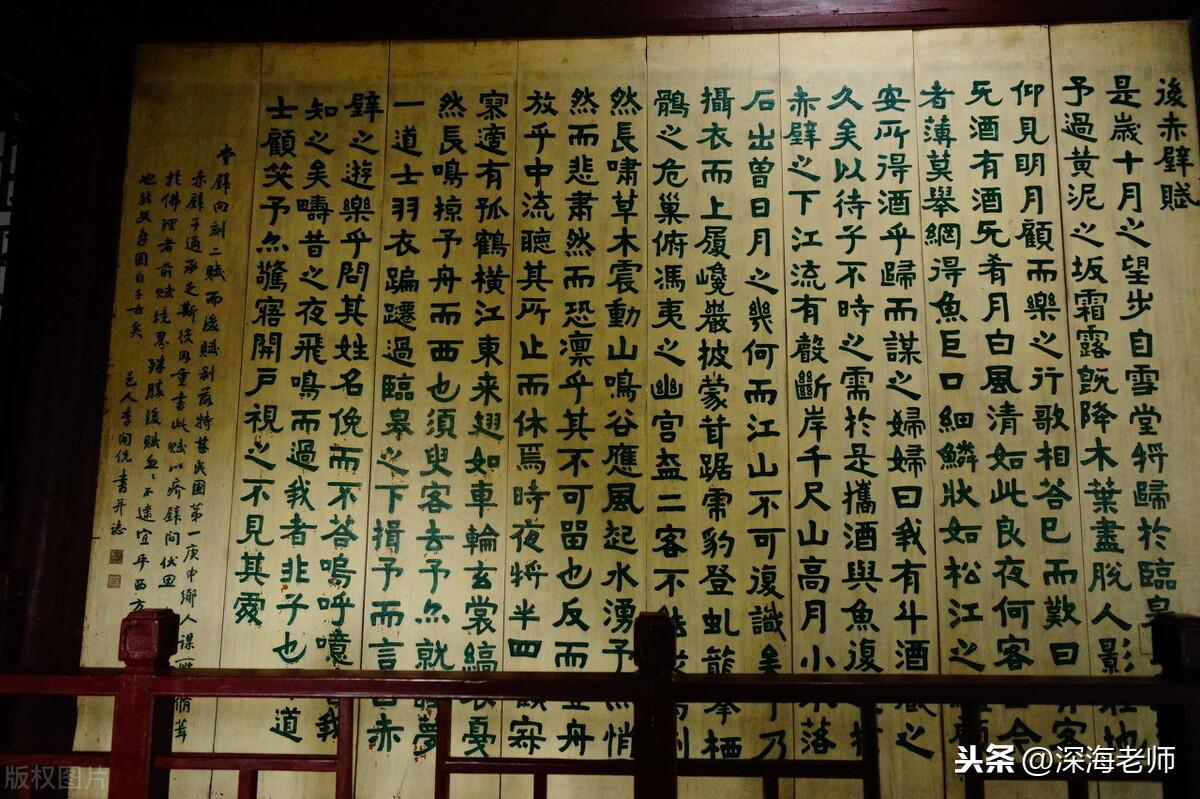 後赤壁賦
是歲十月之望步自雪堂將歸於臨皋
予過黃泥之坂霜露既降木葉盡脫人影在地
仰見明月顧而樂之行歌相答已而歎曰有客
无酒有酒无肴月白風清如此良夜何客曰今
者薄莫舉網得魚巨口細鱗狀如松江之鱸顧
安所得酒乎歸而謀之婦婦曰我有斗酒藏之
久矣以待子不時之需於是攜酒與魚復
赤壁之下江流有聲斷岸千尺山高月小水落
石出曾日月之幾何而江山不可復識矣予乃
攝衣而上履巉巖披蒙茸踞虎豹登虬龍攀栖
鶻之危巢俯馮夷之幽宮盖二客不能從焉劃
然長嘯草木震動山鳴谷應風起水湧予亦悄
然而悲肅然而恐凛乎其不可留也反而登舟
放乎中流聽其所止而休焉時夜將半四顧寂
寥適有孤鶴橫江東来翅如車輪玄裳縞衣戛
然長鳴掠予舟而西也須臾客去予亦就睡夢
一道士羽衣蹁躚過臨皋之下揖予而言曰赤
壁之遊樂乎問其姓名俛而不答嗚呼噫嘻我
知之矣疇昔之夜飛鳴而過我者非子也道
士顧笑予亦驚寤開戶視之不見其處
堂壁向刻二賦而後賦剝蝕特甚民國第一庚申鄉人謀脩葺
赤壁予適承乏斯役因重書此賦以
於佛理者前賦境界殊勝後賦不逮宜乎西方
也
邑人李開侁書并誌
头条@深海老师
版权图片